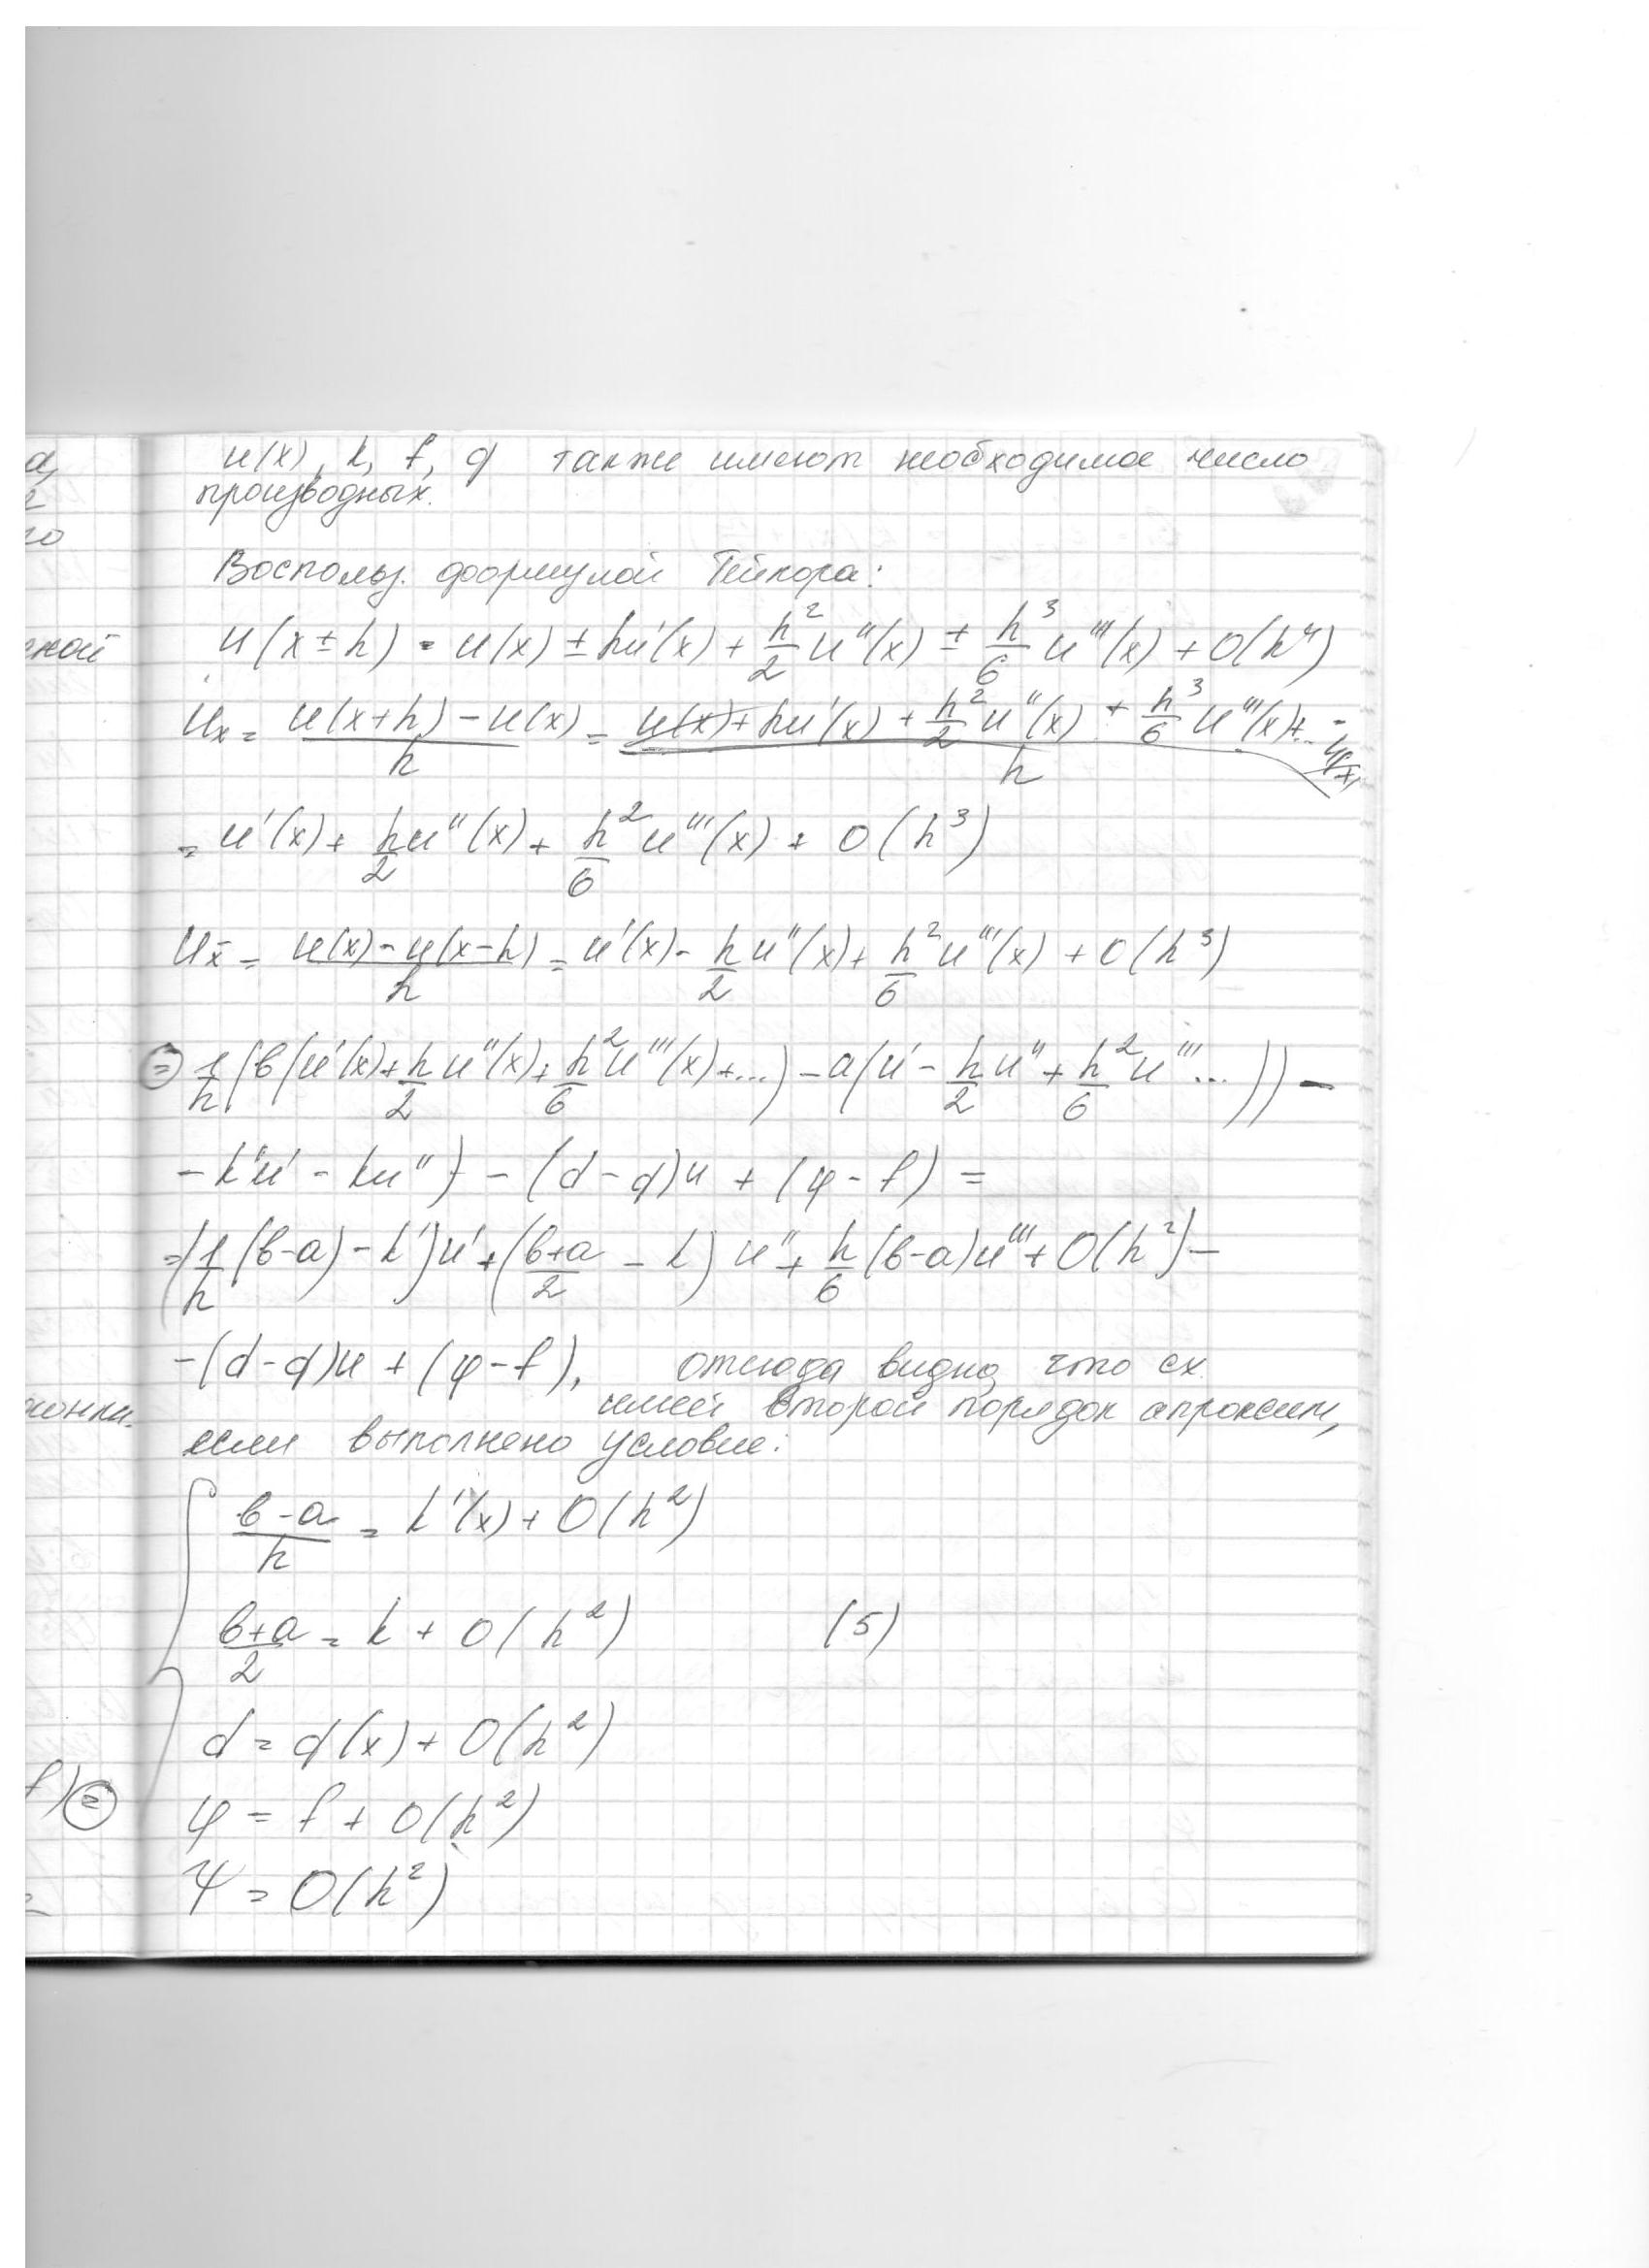 u(x), k, f, q также имеют необходимое число
производных.
Воспольз. формулой Тейлора:
u(x ± h) = u(x) ± hu'(x) + h²/2 u''(x) ± h³/6 u'''(x) + O(h⁴)
u_x = (u(x+h) - u(x))/h = (u(x) + hu'(x) + h²/2 u''(x) + h³/6 u'''(x) + ... - u(x))/h
= u'(x) + h/2 u''(x) + h²/6 u'''(x) + O(h³)
u_x̄ = (u(x) - u(x-h))/h = u'(x) - h/2 u''(x) + h²/6 u'''(x) + O(h³)
⊜ 1/h (в(u'(x) + h/2 u''(x) + h²/6 u'''(x) + ...) - a(u' - h/2 u'' + h²/6 u''' ...)) -
- k'u' - ku'') - (d - q)u + (φ - f) =
= (1/h (в-a) - k')u' + ((в+a)/2 - k) u'' + h/6 (в-a)u''' + O(h²) -
- (d - q)u + (φ - f), отсюда видно, что сх.
имеет второй порядок апроксим,
если выполнено условие:
(в - a)/h = k'(x) + O(h²)
(в+a)/2 = k + O(h²) (5)
d = q(x) + O(h²)
φ = f + O(h²)
f) ⊜
Ψ = O(h²)